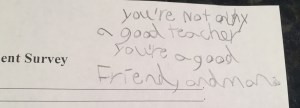 you're Not only
a good teacher
you're a good
ent Survey
Friend, and